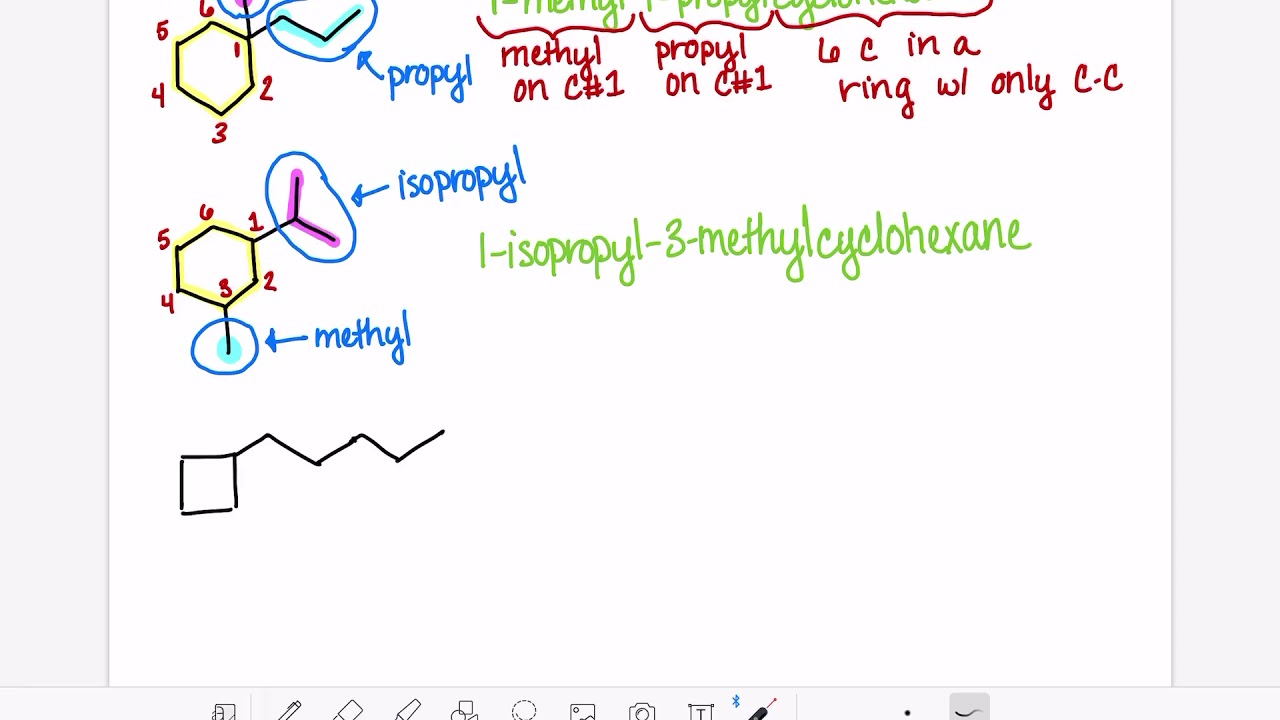 1-methyl-1-propylcyclohexane
6
5
1
4
2
3
propyl
methyl on C#1
propyl on C#1
6 C in a ring w/ only C-C
isopropyl
6
1
5
2
3
4
1-isopropyl-3-methylcyclohexane
methyl
T